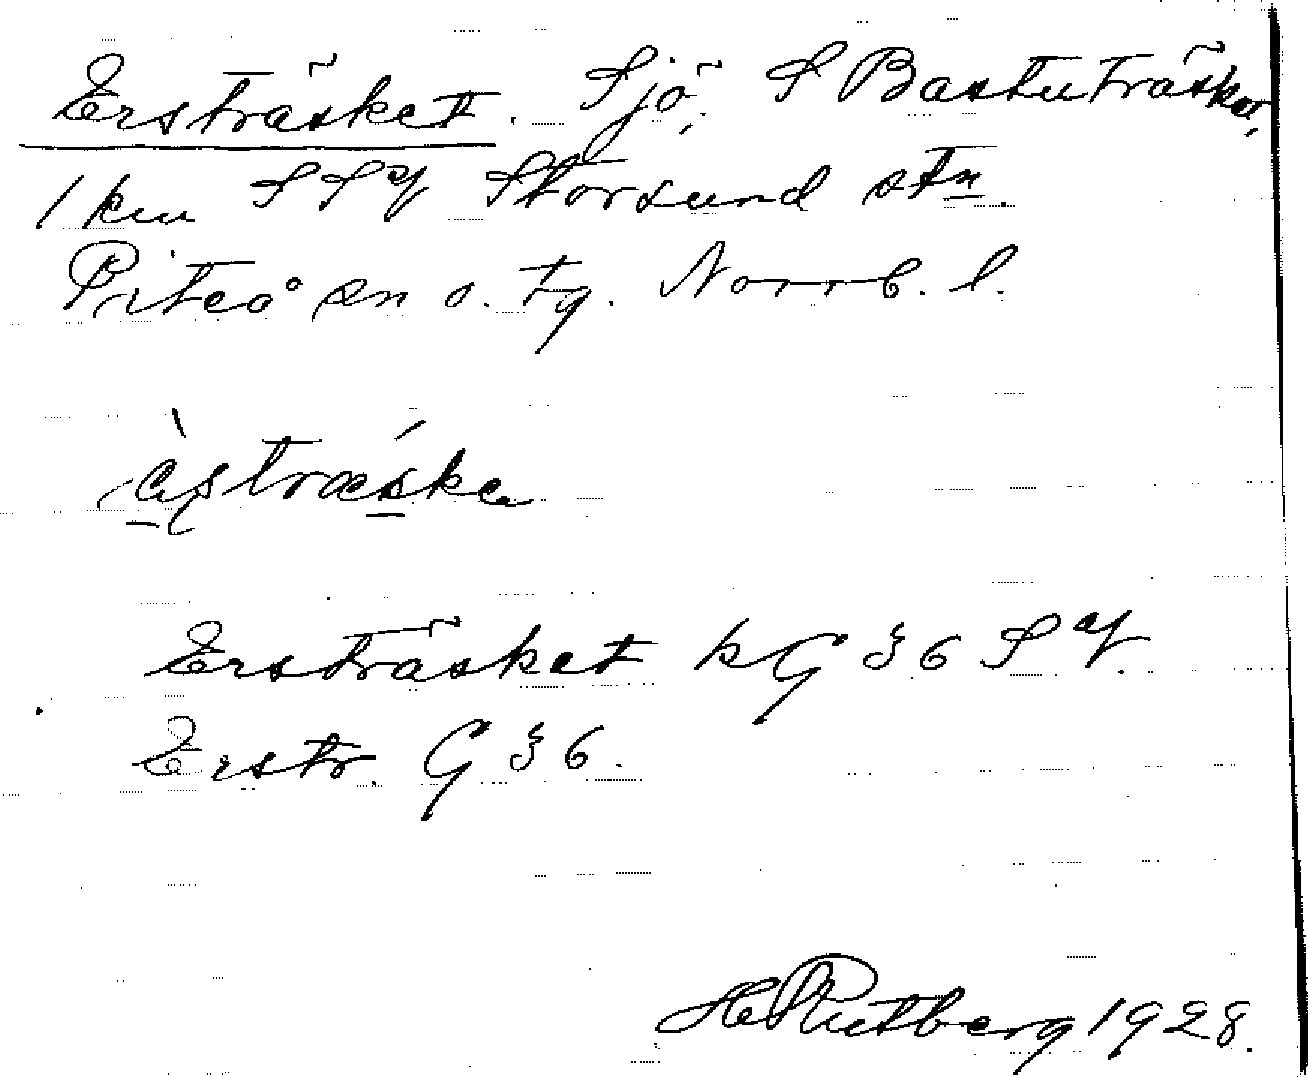 Ersträsket. Sjö, S Bastuträsket,
1 km SSV Storsund stn.
Piteå sn o. tg. Norrb. l.
Ersträsket kG 36 SV.
Erstr. G 36.
H Rutberg 1928.